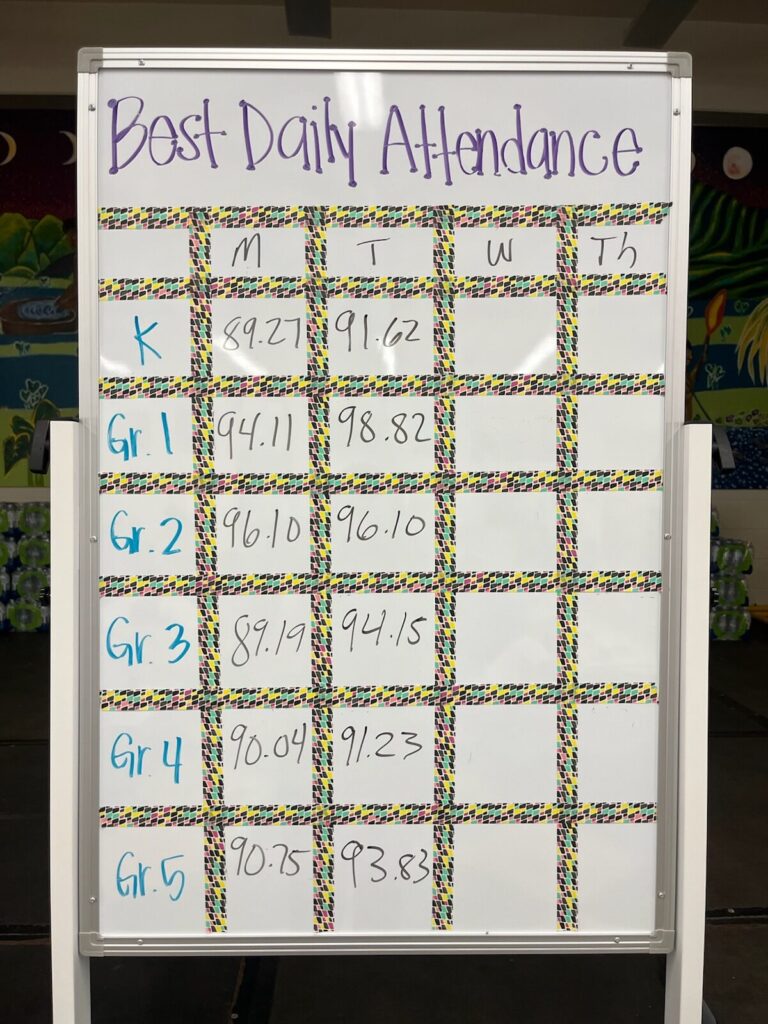 Best Daily Attendance
M T W Th
K 89.27 91.62
Gr. 1 94.11 98.82
Gr. 2 96.10 96.10
Gr. 3 89.19 94.15
Gr. 4 90.04 91.23
Gr. 5 90.75 93.83